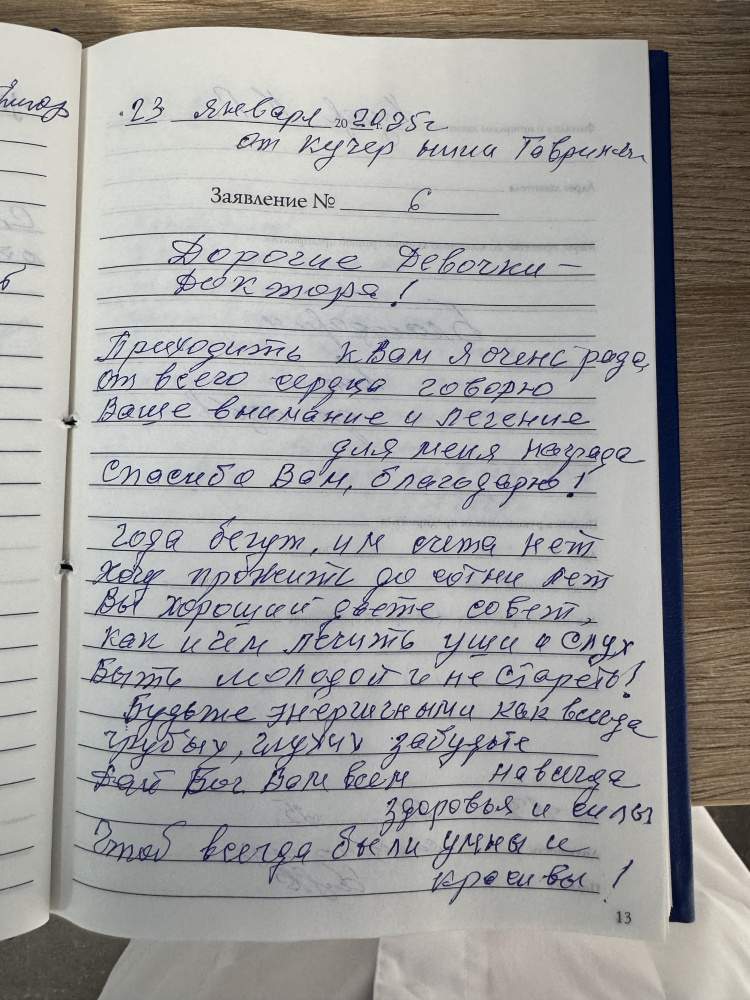 23 января 20 2025г
от Кучер нина Гавринович
Заявление № 6
Дорогие Девочки –
Доктора!
Приходить к Вам я очень рада,
от всего сердца говорю
Ваше внимание и лечение
для меня награда
Спасибо Вам, благодарю!
Года бегут, им счета нет
Хочу прожить до сотни лет
Вы хороший даете совет,
как и чем лечить уши и слух
Быть молодой и не стареть!
Будьте энергичными как всегда
грубых, глухих забудьте
навсегда
Дай Бог Вам всем
здоровья и силы
Чтоб всегда были умны и
красивы!
13